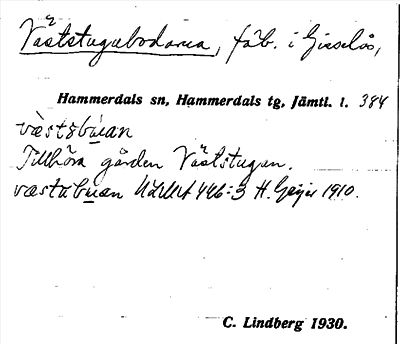 Väststugubodarna, fäb. i Gisselås,
Hammerdals sn, Hammerdals tg, Jämtl. l. 384
västsbuan
Tillhöra gården Väststugan.
västubuan 446:3 H. Geijer 1910.
C. Lindberg 1930.